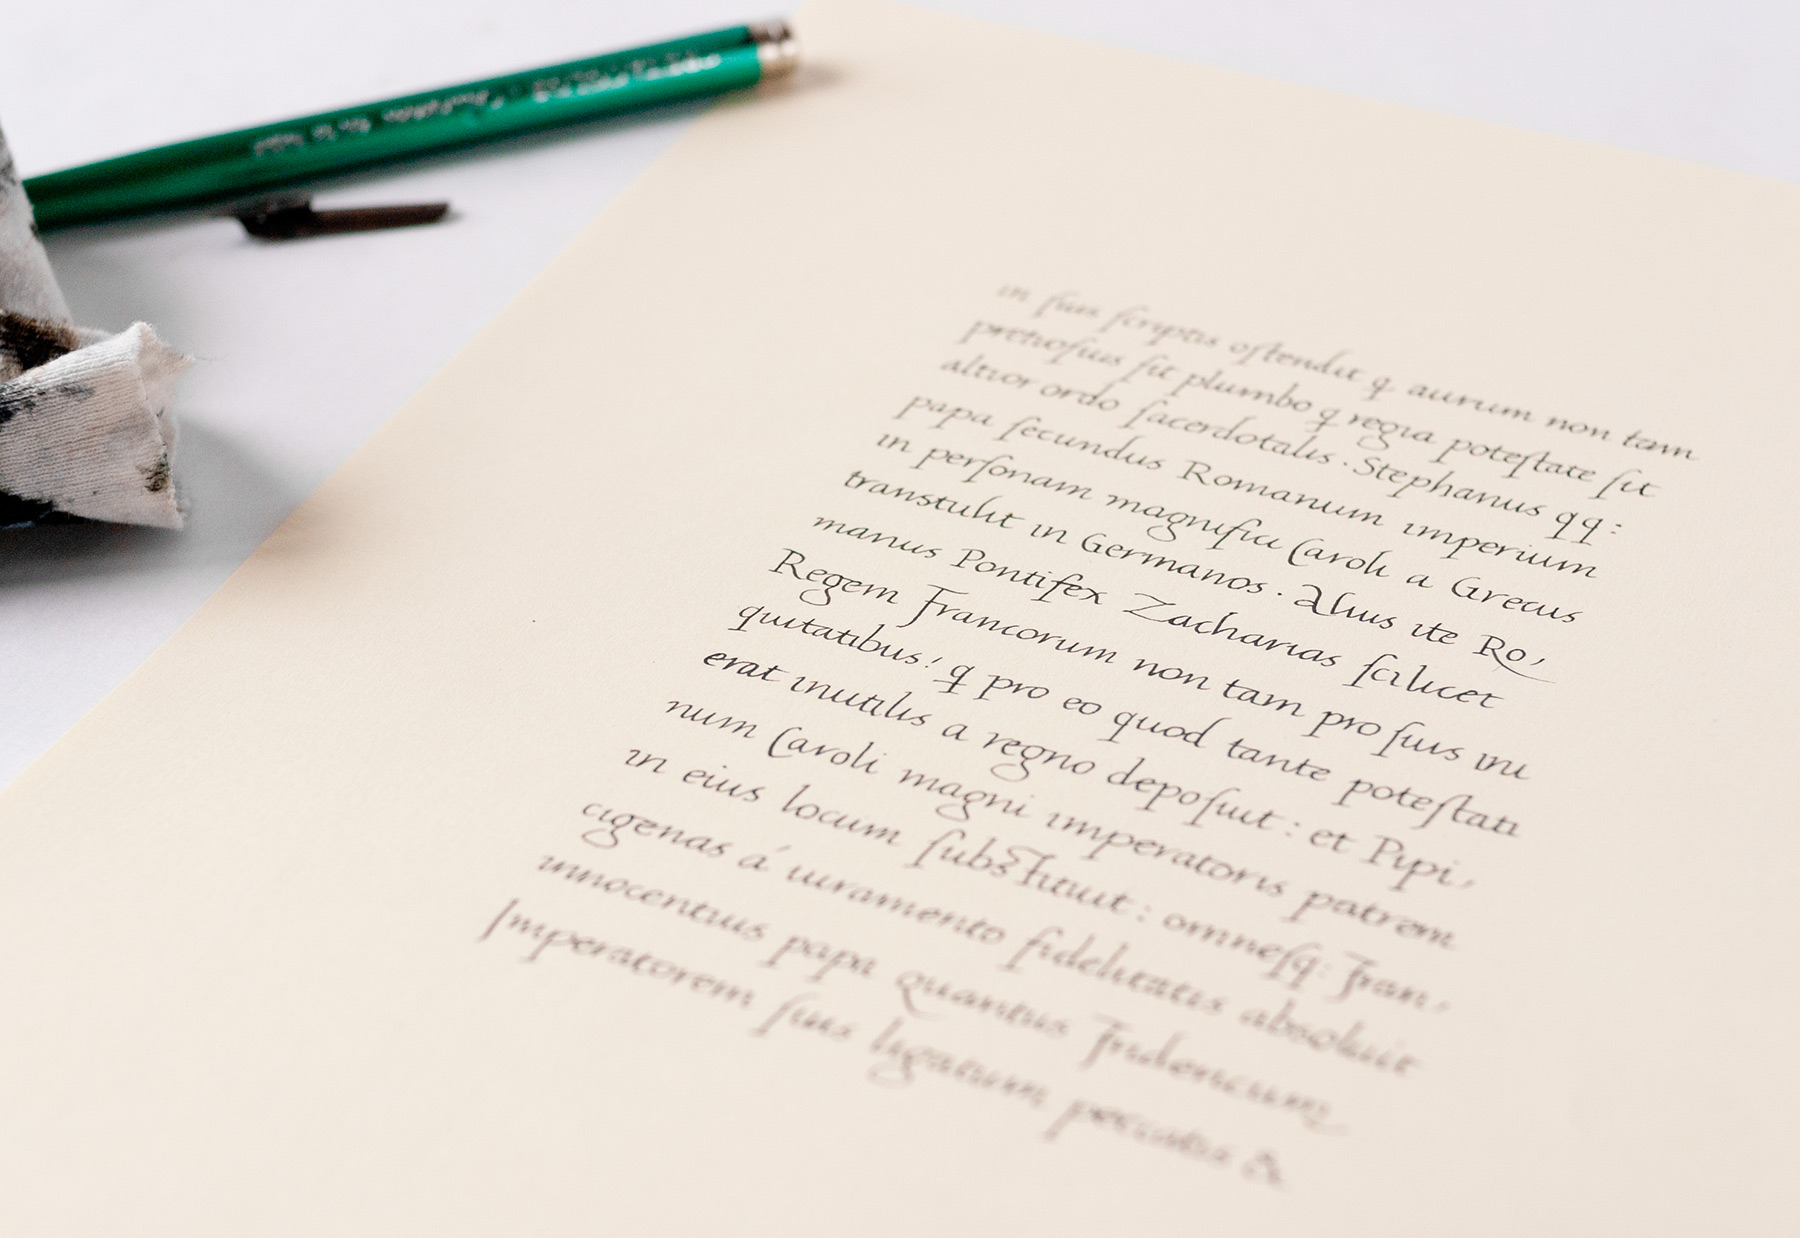 in suis scriptis ostendit q aurum non tam
pretiosius sit plumbo q regia potestate sit
altior ordo sacerdotalis · Stephanus qq:
papa secundus Romanum imperium
in personam magnifici Caroli a Grecis
transtulit in Germanos · Alius ite Ro,
manus Pontifex Zacharias scilicet
Regem Francorum non tam pro suis ini
quitatibus! q pro eo quod tante potestati
erat inutilis a regno deposuit: et Pipi,
num Caroli magni imperatoris patrem
in eius locum substituit: omnesq: Fran,
cigenas á iuramento fidelitatis absoluit
innocentius papa quantus Fridericum
Imperatorem suis ligatum peccatis &